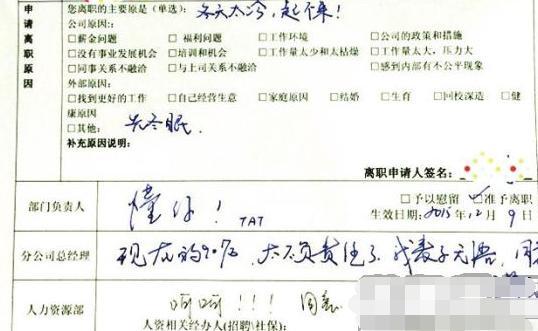 申请离职原因
您离职的主要原是(单选): 冬天太冷,起不来!
公司原因:
□薪金问题 □福利问题 □工作环境 □公司的政策和措施
□没有事业发展机会 □培训和机会 □工作量太少和太枯燥 □工作量太大、压力大
□同事关系不融洽 □与上司关系不融洽 □感到内部有不公平现象
外部原因:
□找到更好的工作 □自己经营生意 □家庭原因 □结婚 □生育 □回校深造 □健
康原因
□其他: 先冬眠.
补充原因说明:
离职申请人签名:
部门负责人 懂你! TAT
□予以慰留 ☑准予离职
生效日期: 2015年12月9日
分公司总经理 现在的90后, 太不负责任了 我表示无语,
人力资源部 呵呵!!! 同意
人资相关经办人(招聘\社保):